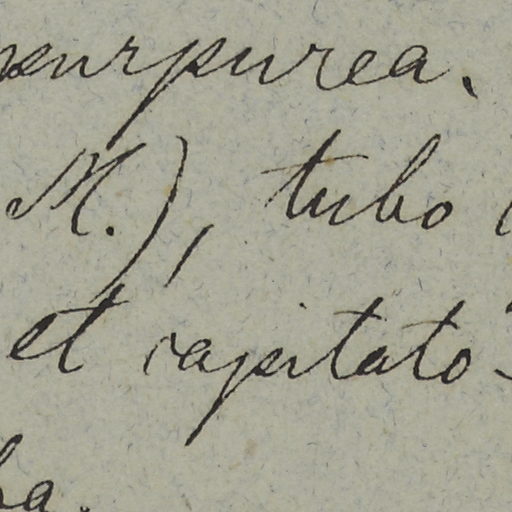 purpurea.
M.), tubo
et capitato-